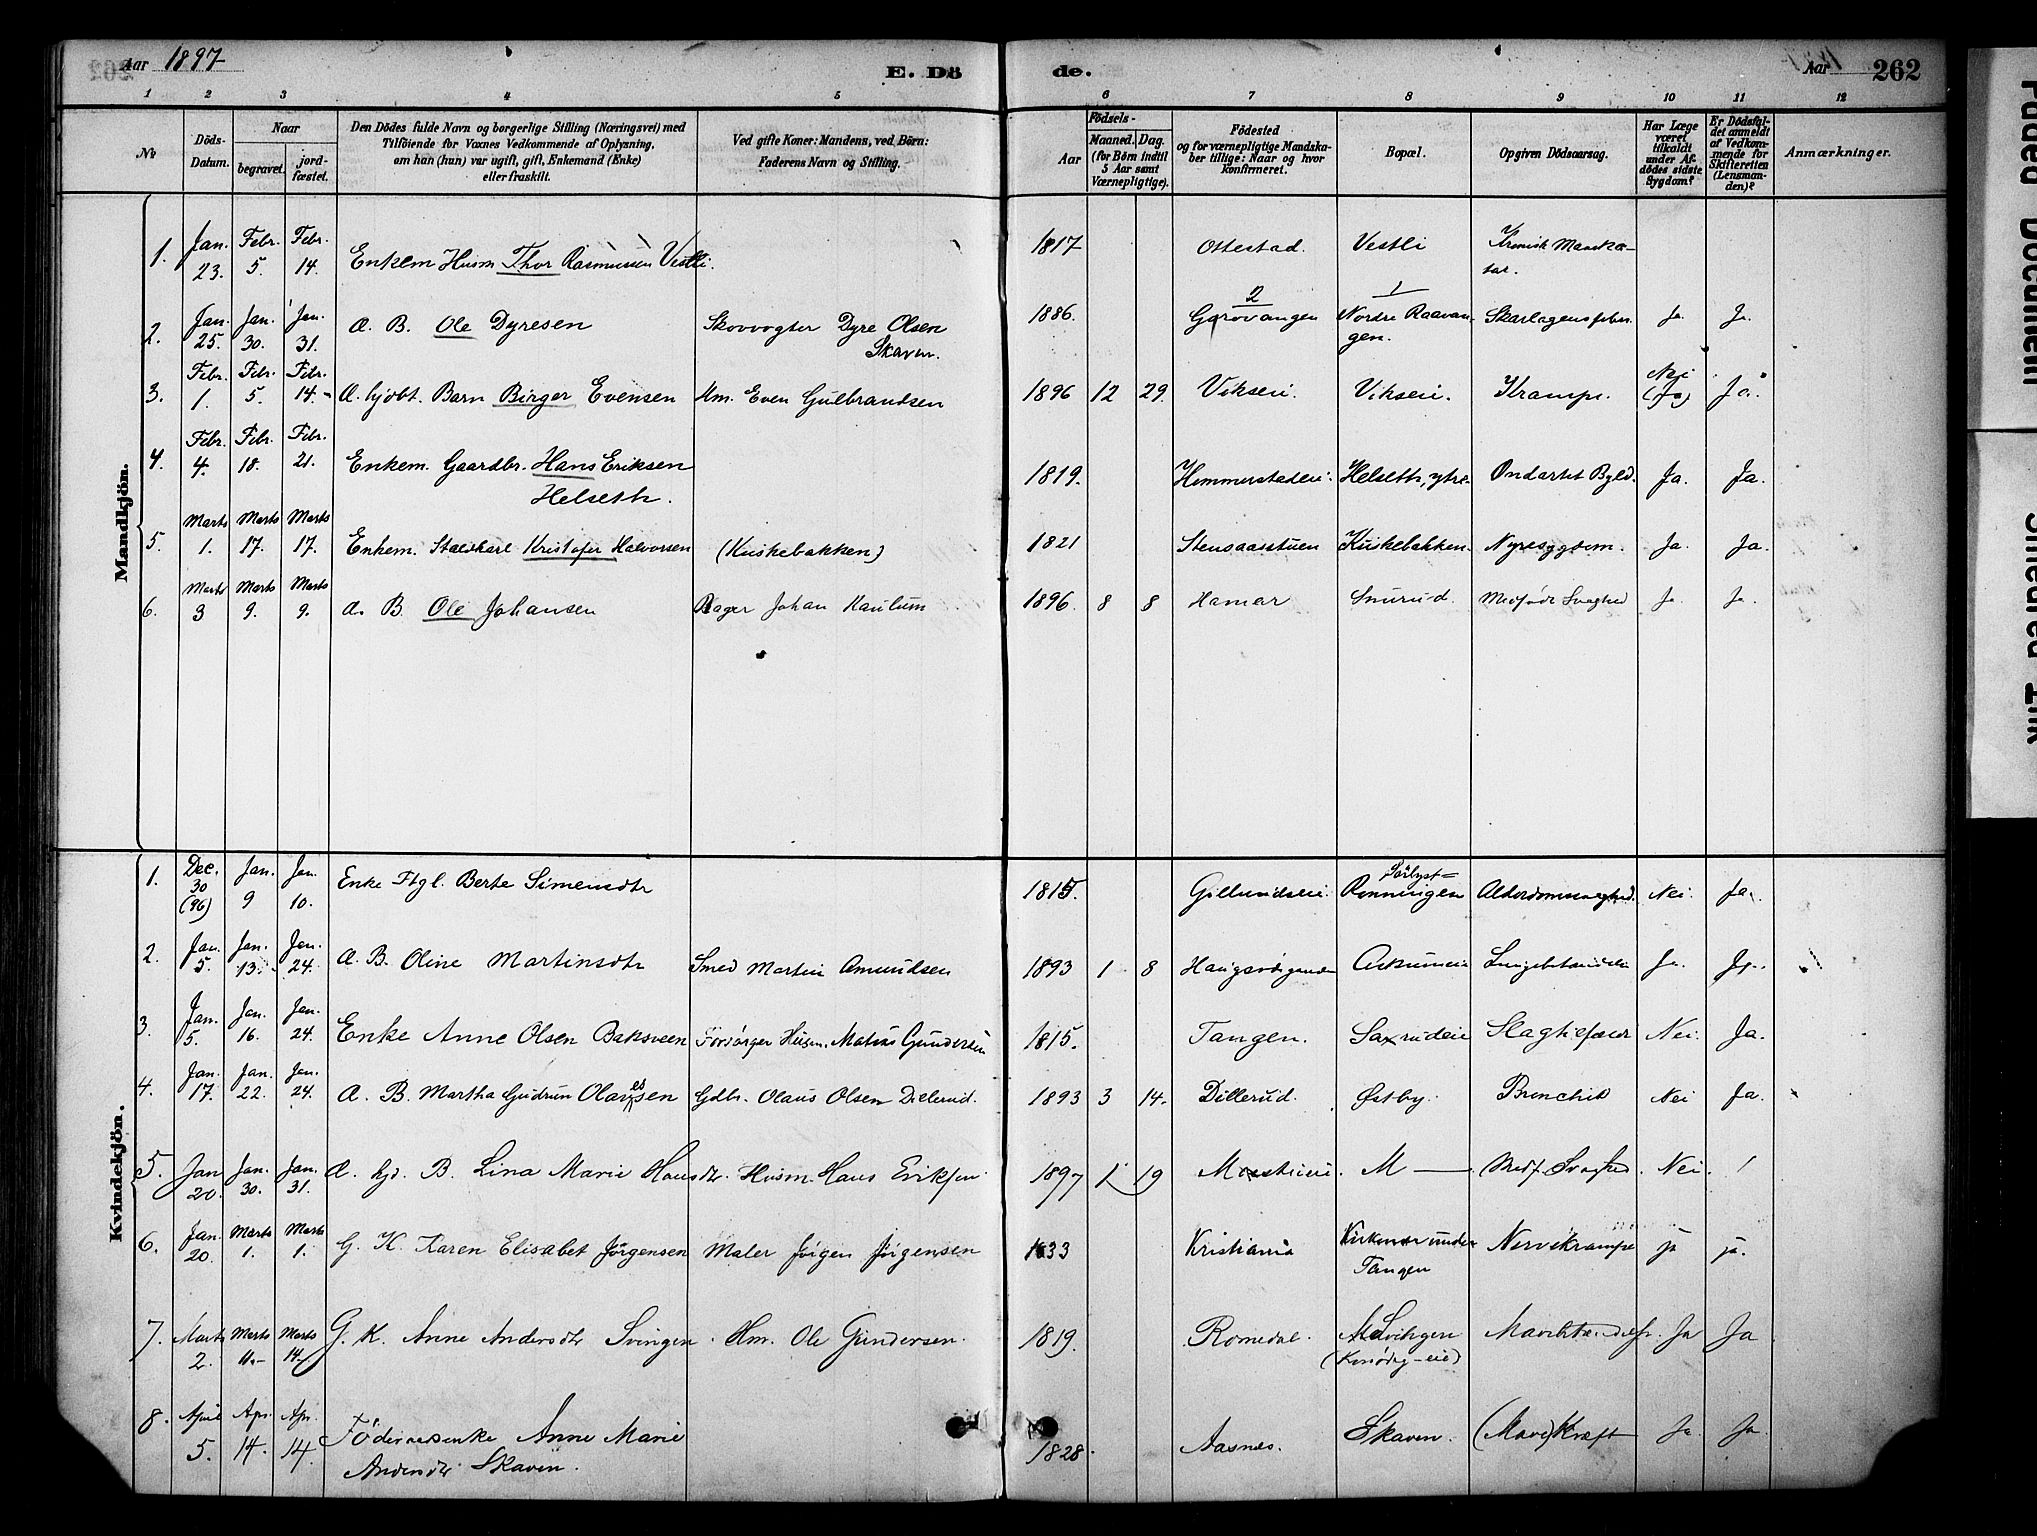 Aar 1897
E. Dö
de.
Aar
262
1 2 3 4 5 6 7 8 9 10 11 12
No
Döds-Datum.
Naar
begravet.
jordfæstet.
Den Dödes fulde Navn og borgerlige Stilling (Næringsvei) med
Tilföiende for Voxnes Vedkommende af Oplysning,
om han (hun) var ugift, gift, Enkemand (Enke)
eller fraskilt.
Ved gifte Koner: Mandens, ved Börn:
Faderens Navn og Stilling.
Födsels-
Aar
Maaned. Dag.
(for Börn indtil
5 Aar samt
Værnepligtige).
Födested
og for værnepligtige Mandskaber tillige: Naar og hvor
konfirmeret.
Bopæl.
Opgiven Dödsaarsag.
Har Læge
været
tilkaldt
under Afdödes sidste
Sygdom?
Er Dödsfaldet anmeldt
af Vedkommende for
Skifteretten
(Lensmanden)?
Anmærkninger.
Mandkjön.
1. Jan. 23. Febr. 5. Febr. 14. Enkem Husm Thor Rasmussen Vestli. 1817 Ottestad. Vestli Kronisk
2. Jan. 25. Jan. 30. Jan. 31. A. B. Ole Dyresen Skovvogter Dyre Olsen Skaven. 1886. Gorovangen Nordre Raavangen. Skarlagensfeber Ja. Ja.
3. Febr. 1. Febr. 5. Febr. 14. A. hjdbt. Barn Birger Evensen Hm. Even Gulbrandsen 1896 12 29. Vikseie. Vikseie. Krampe. Nei (Ja) Ja.
4. Febr. 4. Febr. 18. Febr. 21. Enkem. Gaardbr. Hans Eriksen Helseth. 1819. Hommerstadeie. Helseth, ytre. Ondartet Byld. Ja. Ja.
5. Marts 1. Marts 17. Marts 17. Enkem. Staldkarl Kristofer Halvorsen (Kuskebakken) 1821 Stensaasstuen Kuskebakken. Nyresygdom. Ja. Ja.
6. Marts 3 Marts 9. Marts 9. A. B. Ole Johansen Bager Johan Kaulum 1896. 8 8 Hamar Snurud. Medfødt Svaghed Ja Ja.
Kvindekjön.
1. Dec. 30 (96) Jan. 9 Jan. 10. Enke Ftgl. Berte Simensdtr 1815. Gillundseie. Sörlyst= Ronningen Alderdomssvaghed. Nei. Ja.
2. Jan. 5. Jan. 13. Jan. 24. A. B. Oline Martinsdtr Smed Martin Amundsen 1893 1 8 Ja. Ja.
3. Jan. 5. Jan. 16. Jan. 24. Enke Anne Olsen Baksveen Forsørger Husm. Matias Gundersen 1815. Tangen. Saxrudeie Nei. Ja.
4. Jan. 17. Jan. 22. Jan. 24. A. B. Martha Gudrun Olavessen Gdbr. Olaus Olsen Dillerud. 1893 3 14. Dillerud. Østby. Bronchit Nei Ja.
5. Jan 20. Jan. 30. Jan. 31. A. hjd. B. Lina Marie Hansdtr. Husm Hans Eriksen 1897 1 19 M — Medf. Svaghed. Nei.
6. Jan. 20. Marts 1. Marts 1. G. K. Karen Elisabet Jørgensen Maler Jørgen Jørgensen 1833 Kristiania Tangen Nervekrampe ja ja.
7. Marts 2. Marts 11. Marts 14. G. K. Anne Andersdtr Svingen. Hm. Ole Gundersen. 1819. Romedal. Svingen Ja Ja
8. April 5. Apr. 14. Apr. 14. Föderaadsenke Anne Marie Andersdtr Skaven. 1828. Aasnes. Skaven. (Mave)Kræft Ja. Ja.
Faded Document
Smeared Ink